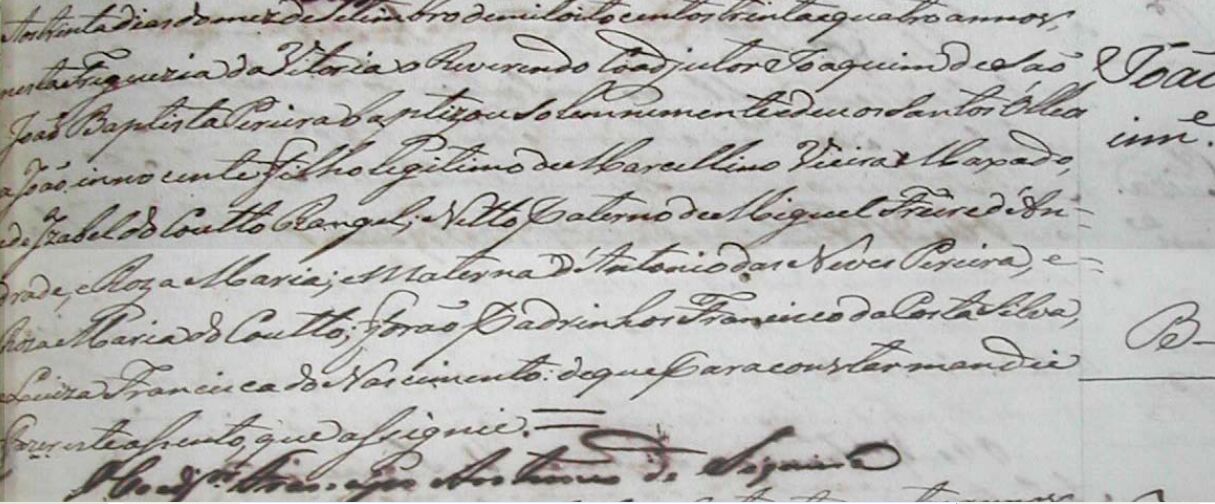 Aos trinta dias do mez de Setembro de mil oito centos trinta e quatro annos,
nesta Freguezia da Vitoria o Reverendo Coadjutor Joaquim de São
João Baptista Pereira baptizou solemnemente e deu os Santos Oleos
a João, innocente filho legitimo de Marcellino Vieira Maxado,
e de Izabel do Coutto Rangel; Netto Paterno de Miguel Freire d'An=
drade, e Roza Maria; e Materna d'Antonio das Neves Pereira, e=
Roza Maria do Coutto; forão Padrinhos Francisco da Costa Silva,
e Luiza Francisca do Nascimento: de que para constar mandei
fazer este assento, que assignei. =
de Siqueira
João
inn.e
B-